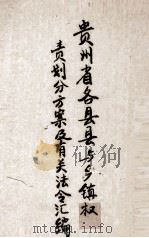 贵州省各县县与乡镇权
责划分方案及有关法令汇编